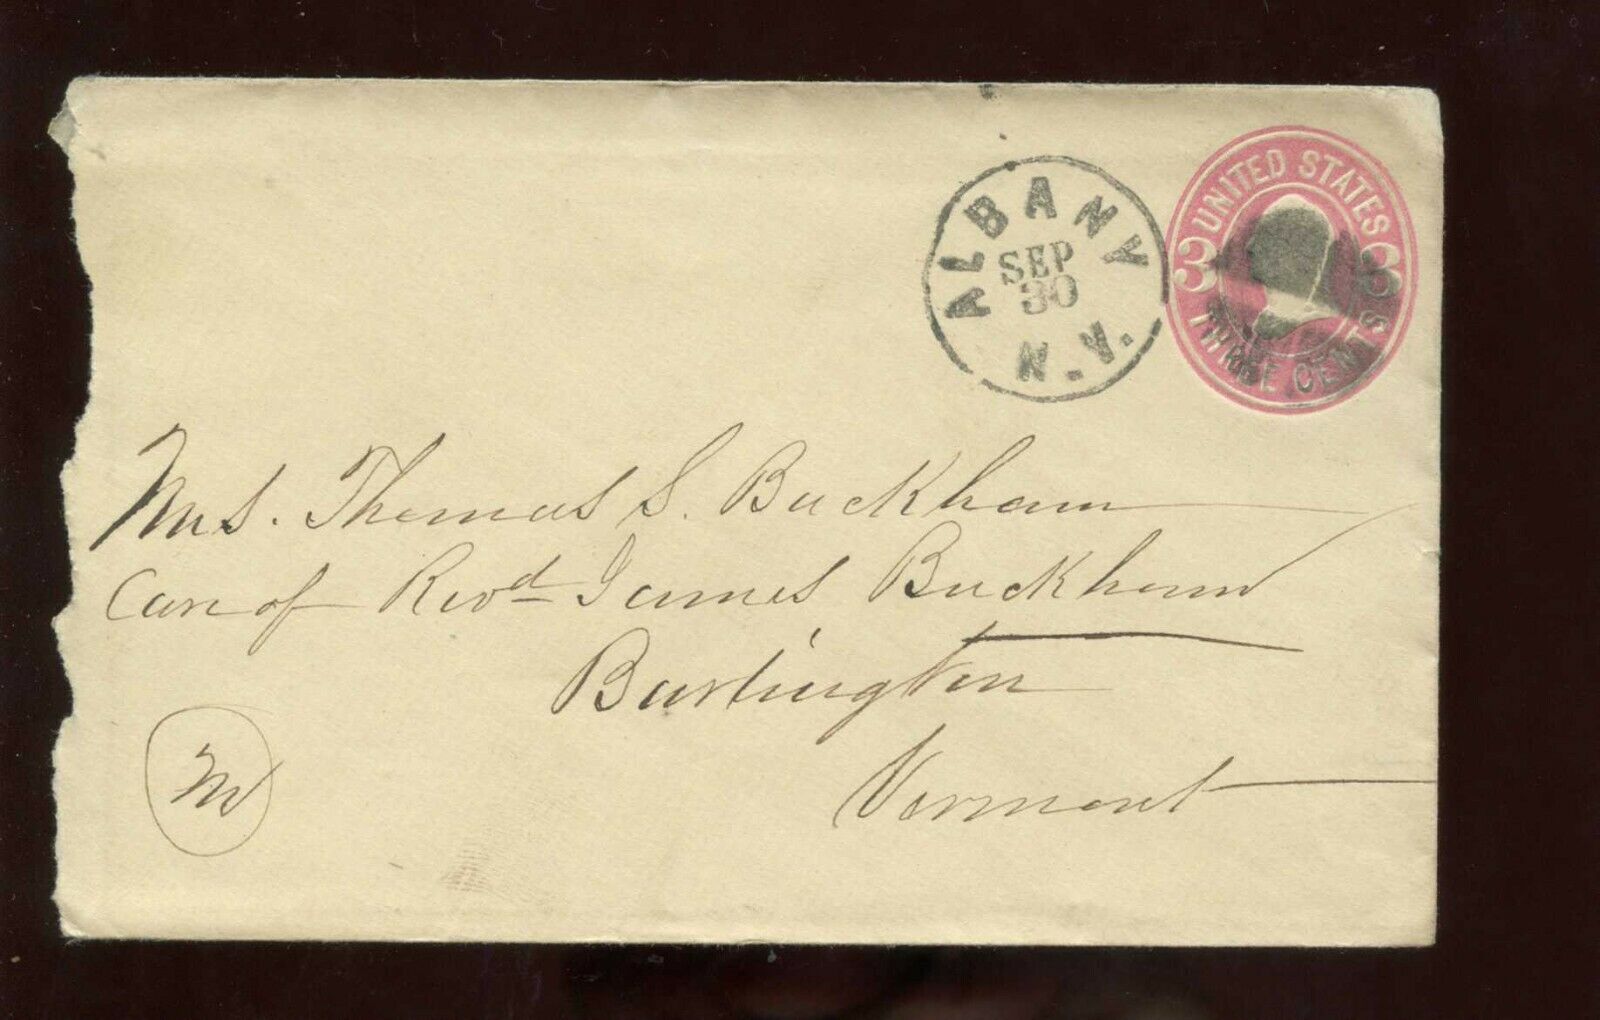 ALBANY
SEP
30
N.Y.
UNITED STATES
3 3
THREE CENTS
Mrs. Thomas S. Buckham
Care of Revd James Buckham
Burlington
Vermont